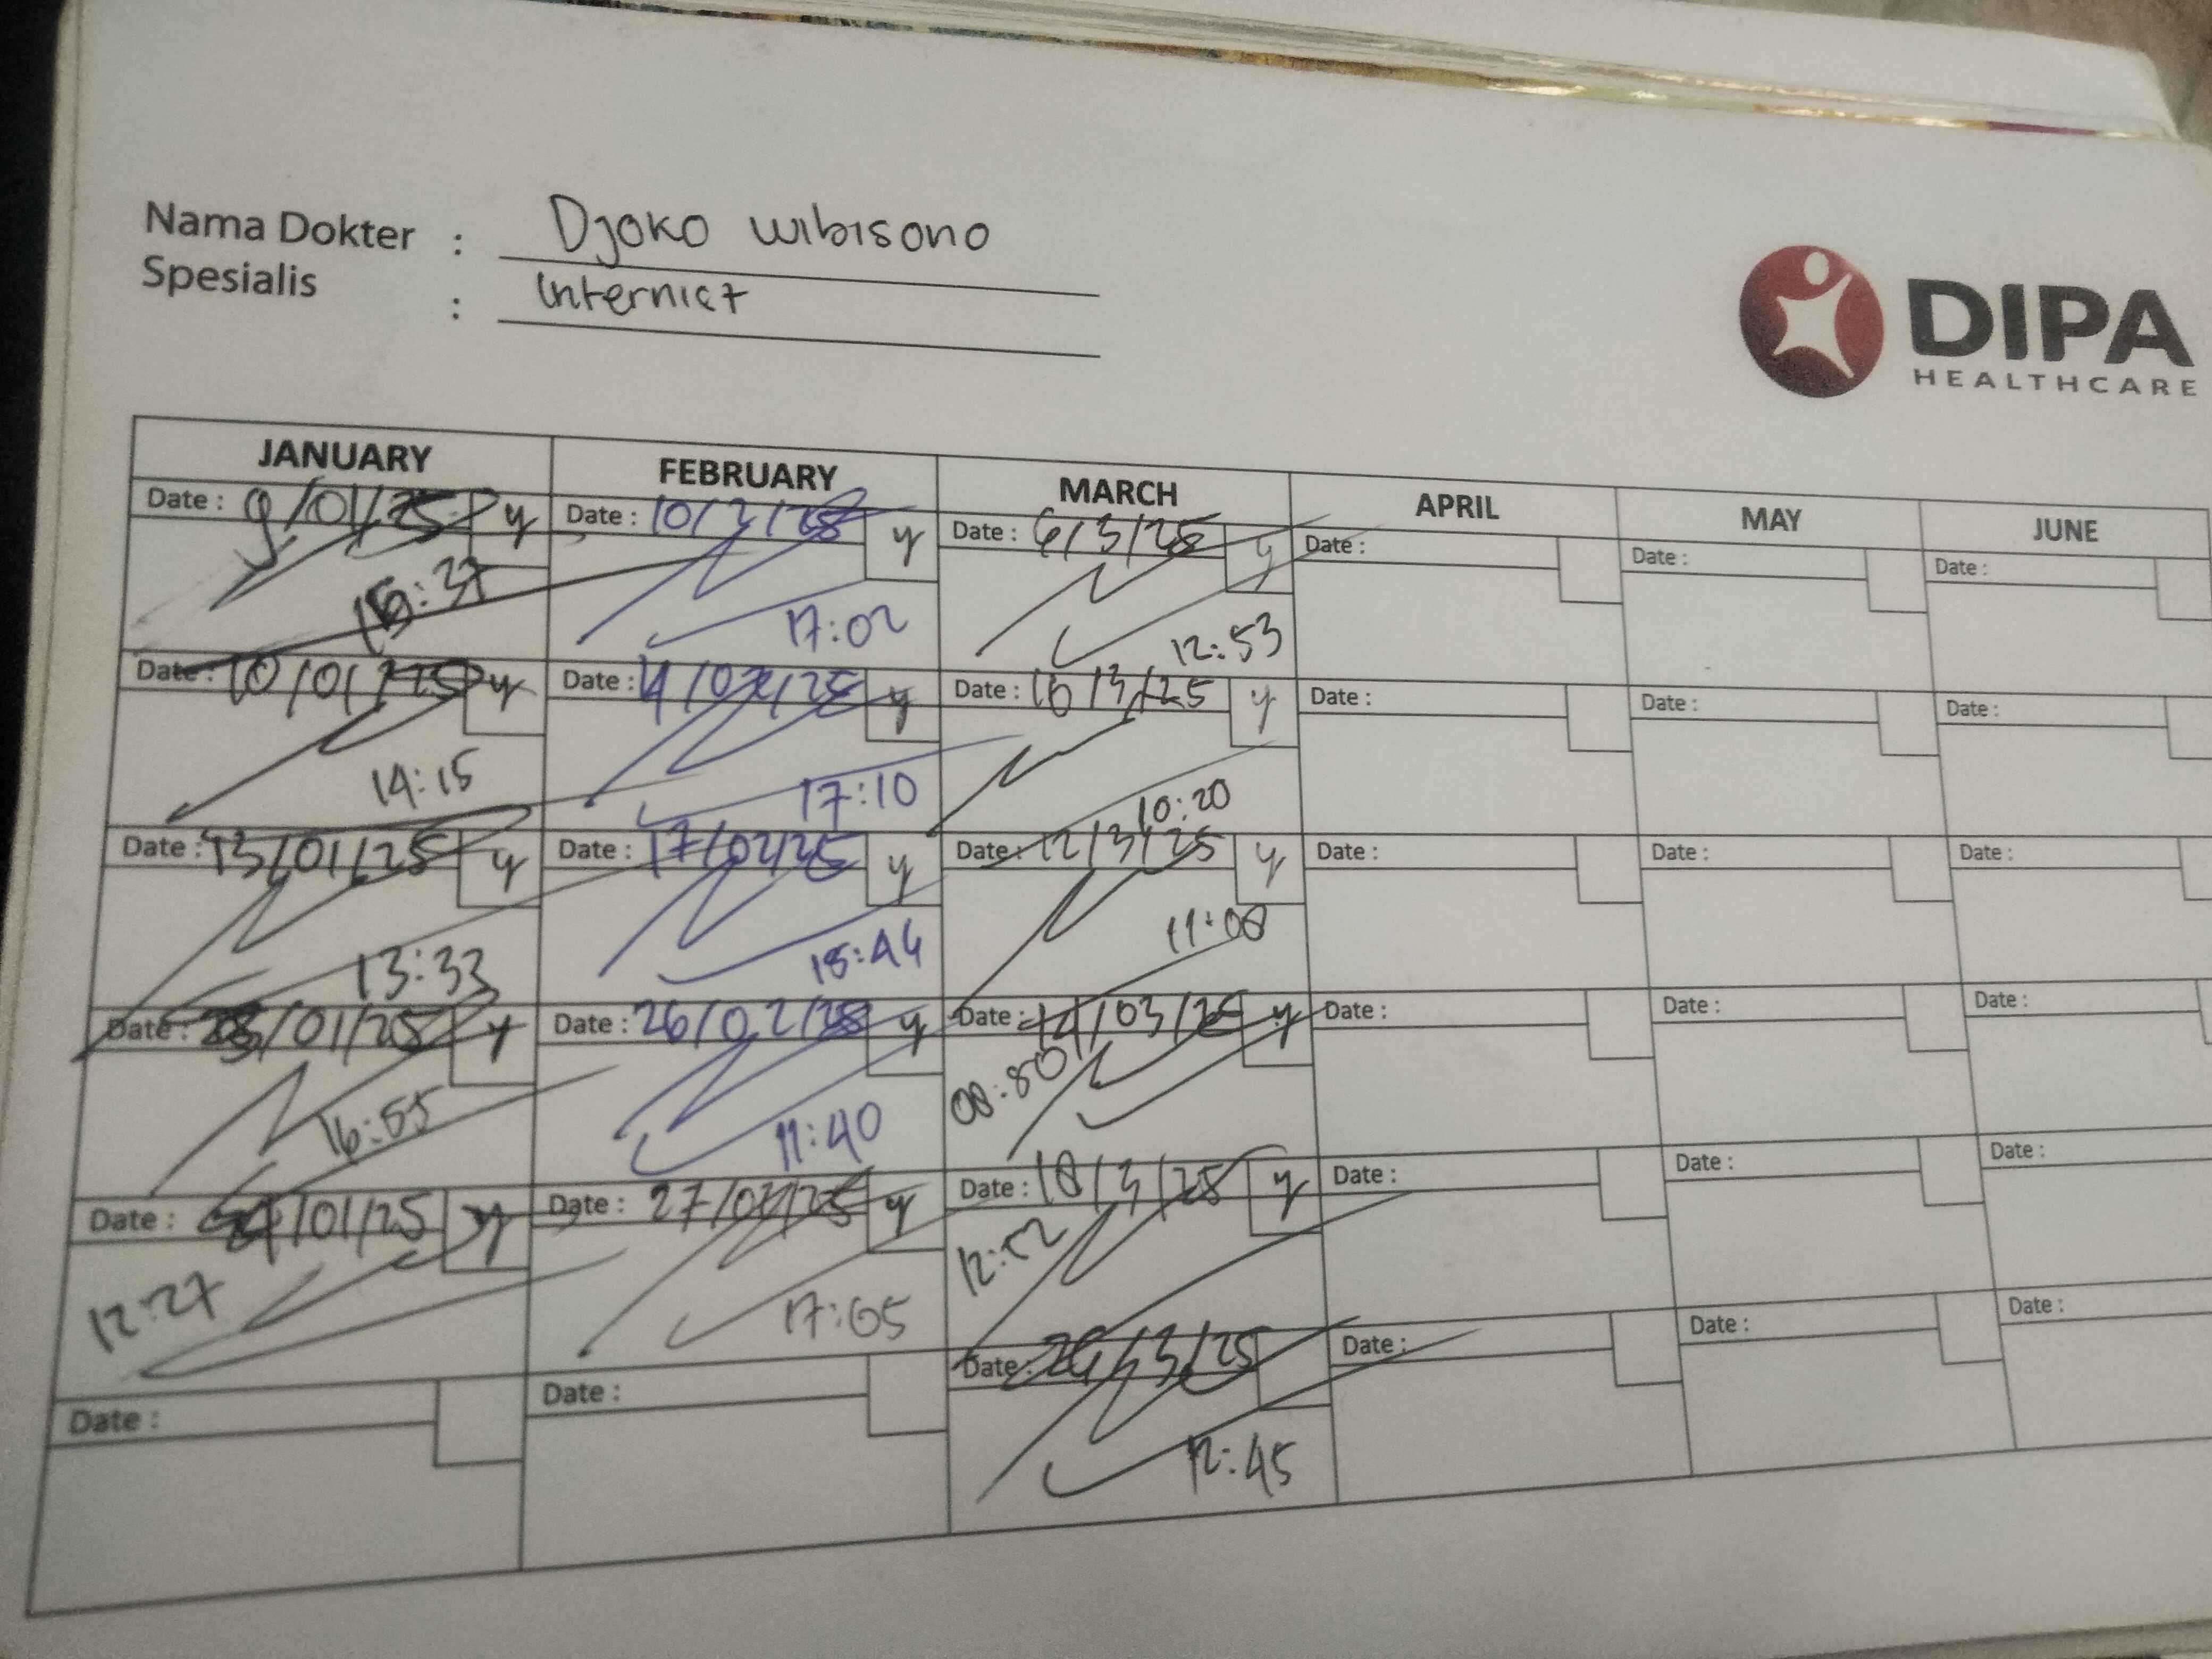 Nama Dokter : Djoko Wibisono
Spesialis : Internist
DIPA
HEALTHCARE
JANUARY FEBRUARY MARCH APRIL MAY JUNE
Date : 9/01/25 y Date : 10/2/25 y Date : 6/3/25 y Date : Date : Date :
17:02 12:53
Date : 10/01/25 y Date : /02/25 y Date : 10/3/25 y Date : Date : Date :
14:15 17:10 10:20
Date : 13/01/25 y Date : 17/02/25 y Date : 12/3/25 y Date : Date : Date :
13:33 15:44 11:08
Date : /01/25 y Date : 26/02/25 y Date : /03/25 y Date : Date : Date :
16:55 11:40 08:50
Date : /01/25 y Date : 27/02/25 y Date : 18/3/25 y Date : Date : Date :
12:27 17:05 12:52
Date : Date : Date : /3/25 Date : Date : Date :
12:45